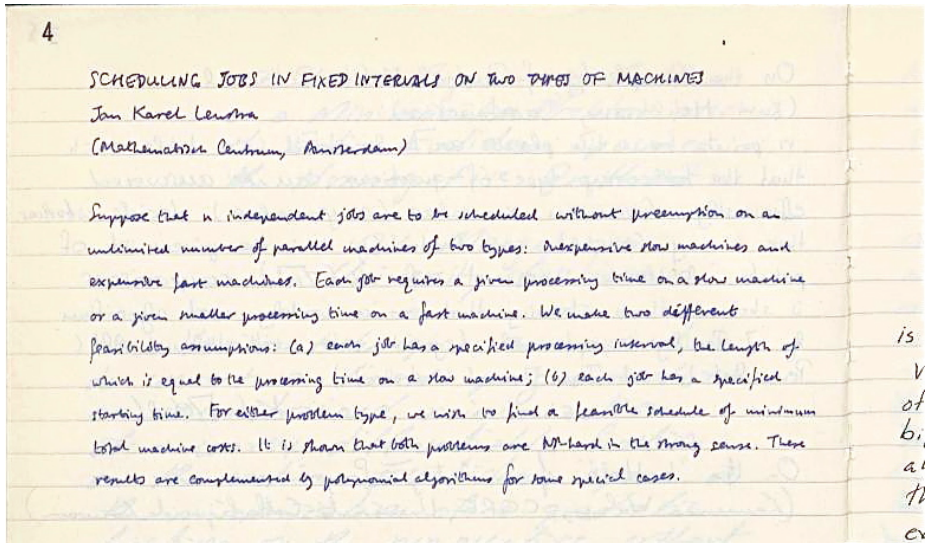 4
SCHEDULING JOBS IN FIXED INTERVALS ON TWO TYPES OF MACHINES
Jan Karel Lenstra
(Mathematisch Centrum, Amsterdam)
Suppose that n independent jobs are to be scheduled without preemption on an
unlimited number of parallel machines of two types: inexpensive slow machines and
expensive fast machines. Each job requires a given processing time on a slow machine
or a given smaller processing time on a fast machine. We make two different
feasibility assumptions: (a) each job has a specified processing interval, the length of
which is equal to the processing time on a slow machine; (b) each job has a specified
starting time. For either problem type, we wish to find a feasible schedule of minimum
total machine costs. It is shown that both problems are NP-hard in the strong sense. These
results are complemented by polynomial algorithms for some special cases.
is
of